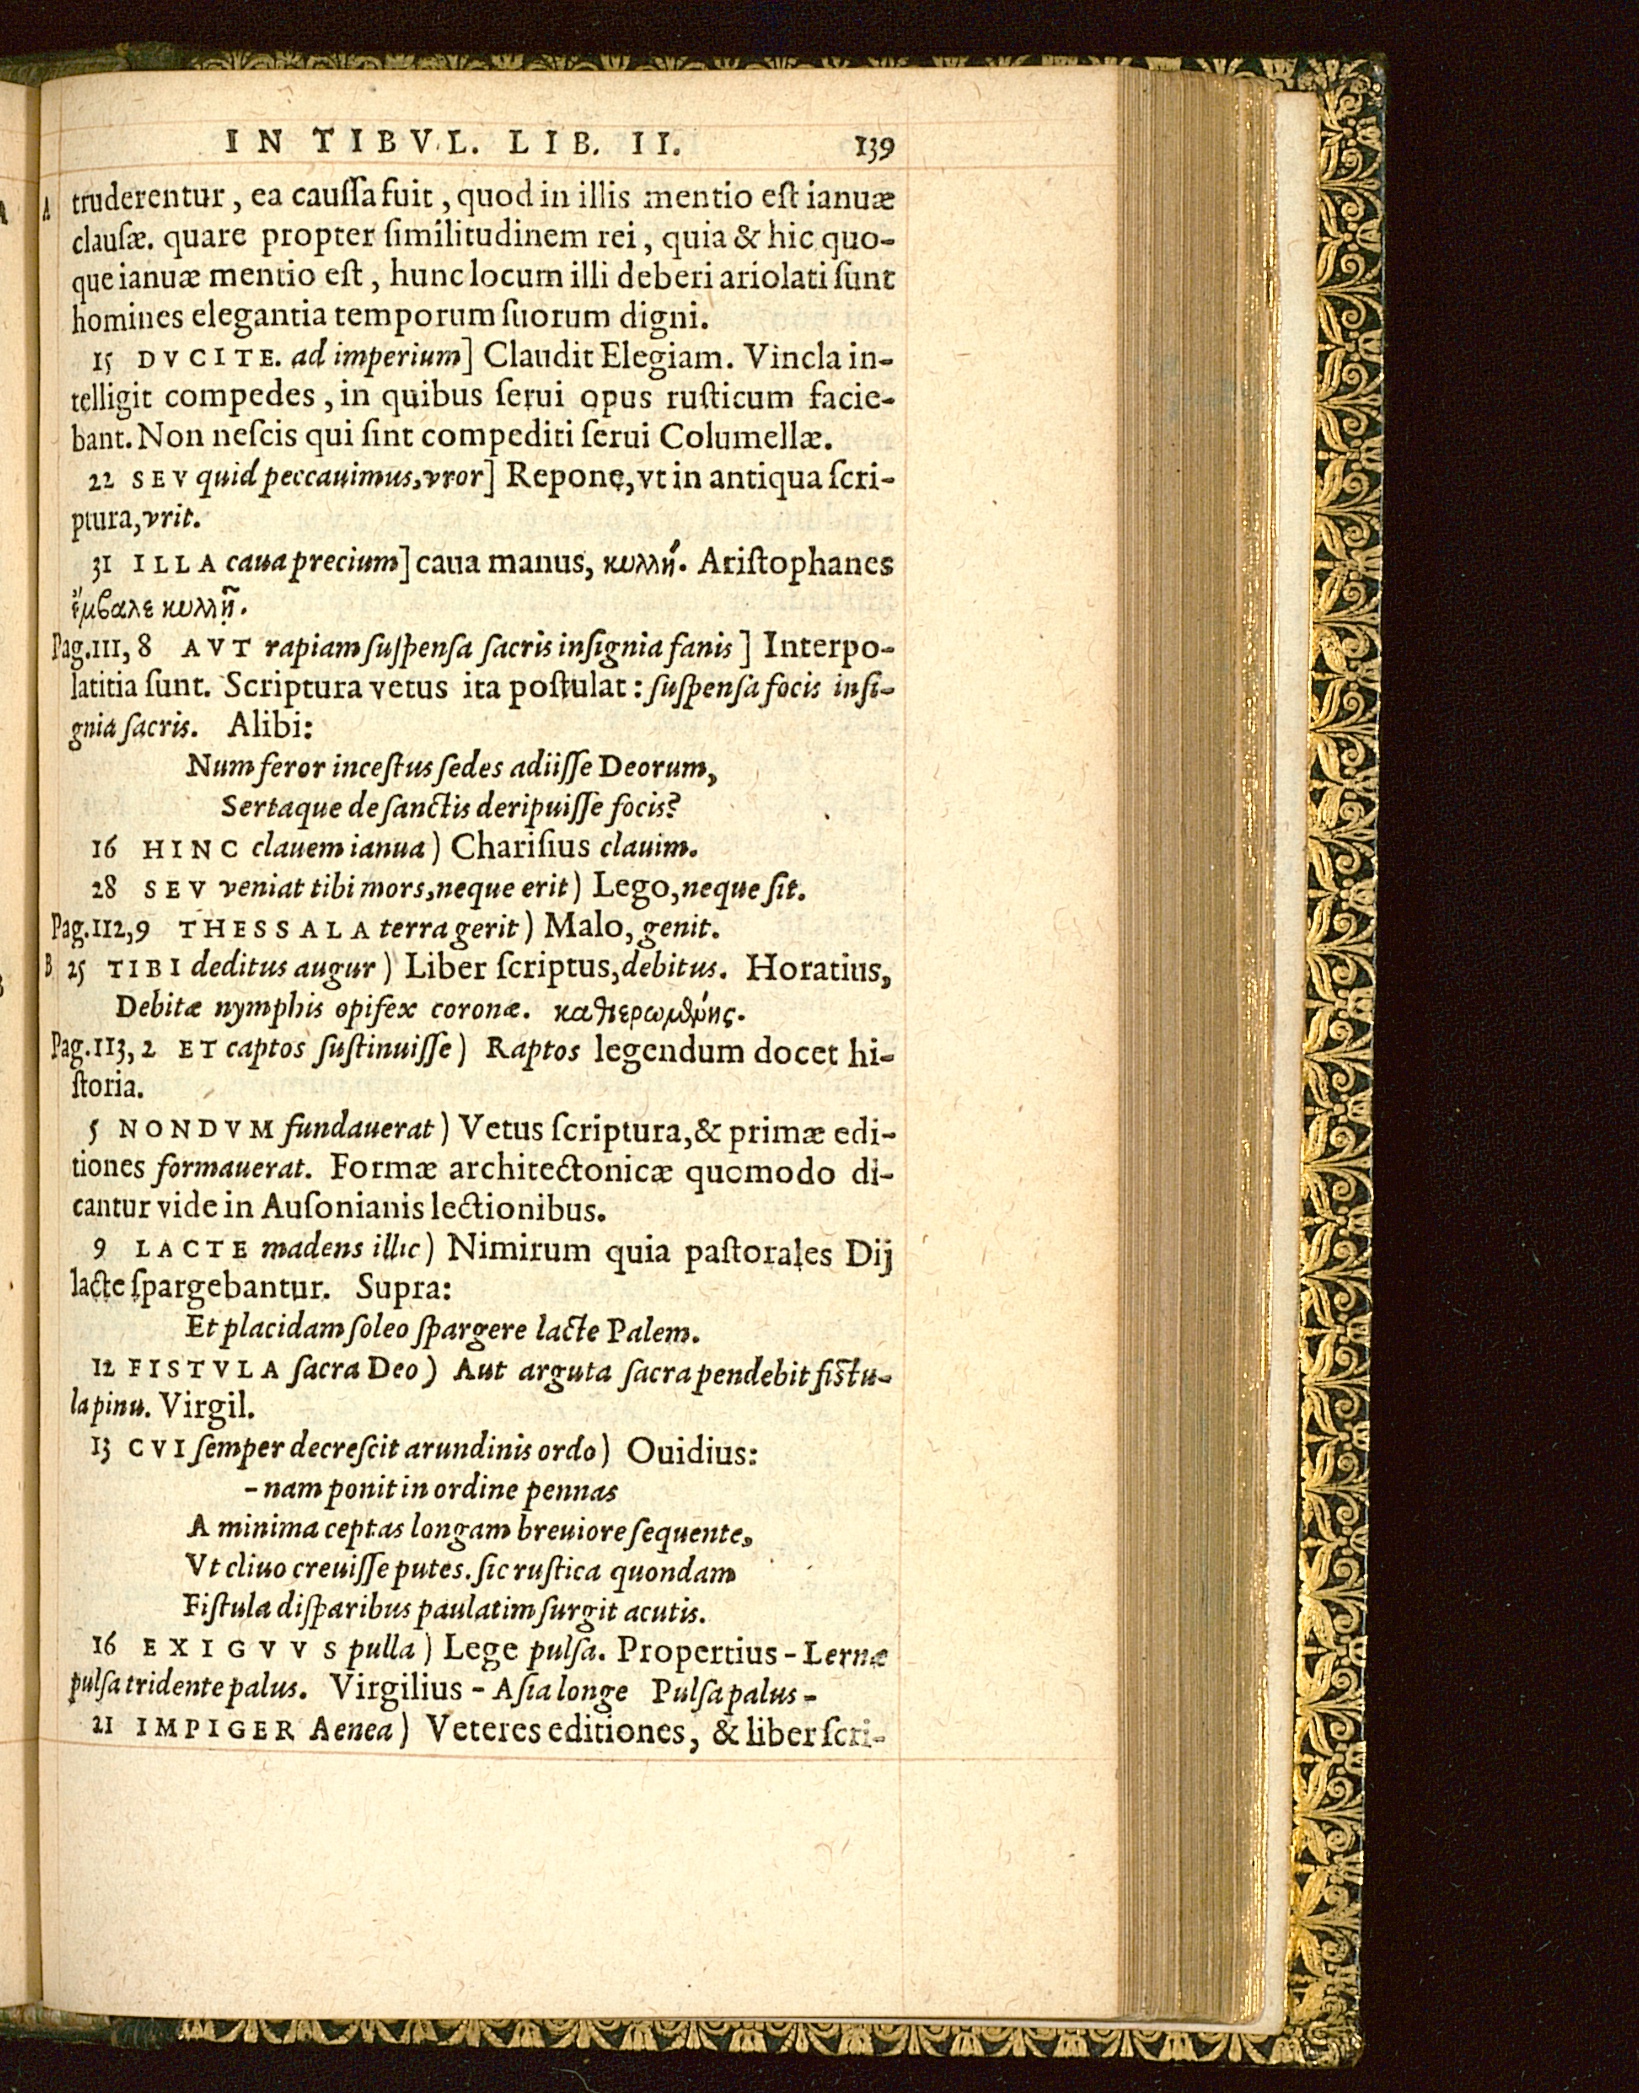 IN TIBVL. LIB. II. 139
A truderentur, ea cauſſa fuit, quod in illis mentio eſt ianuæ
clauſæ. quare propter ſimilitudinem rei, quia & hic quo-
que ianuæ mentio eſt, hunc locum illi deberi ariolati ſunt
homines elegantia temporum ſuorum digni.
15 DVCITE. ad imperium] Claudit Elegiam. Vincla in-
telligit compedes, in quibus ſerui opus ruſticum facie-
bant. Non neſcis qui ſint compediti ſerui Columellæ.
22 SEV quid peccauimus, vror] Repone, vt in antiqua ſcri-
ptura, vrit.
31 ILLA caua precium] caua manus, κυλλή. Ariſtophanes
ἔμβαλε κυλλῇ.
Pag. 111, 8 AVT rapiam ſuſpenſa ſacris inſignia fanis] Interpo-
latitia ſunt. Scriptura vetus ita poſtulat: ſuſpenſa focis inſi-
gnia ſacris. Alibi:
Num feror inceſtus ſedes adiiſſe Deorum,
Sertaque de ſanctis deripuiſſe focis?
16 HINC clauem ianua) Chariſius clauim.
28 SEV veniat tibi mors, neque erit) Lego, neque ſit.
Pag. 112, 9 THESSALA terra gerit) Malo, genit.
B 25 TIBI deditus augur) Liber ſcriptus, debitus. Horatius,
Debitæ nymphis opifex coronæ. καθιερωμένης.
Pag. 113, 2 ET captos ſuſtinuiſſe) Raptos legendum docet hi-
ſtoria.
5 NONDVM fundauerat) Vetus ſcriptura, & primæ edi-
tiones formauerat. Formæ architectonicæ quomodo di-
cantur vide in Auſonianis lectionibus.
9 LACTE madens illic) Nimirum quia paſtorales Dij
lacte ſpargebantur. Supra:
Et placidam ſoleo ſpargere lacte Palem.
12 FISTVLA ſacra Deo) Aut arguta ſacra pendebit fiſtu-
la pinu. Virgil.
13 CVI ſemper decreſcit arundinis ordo) Ouidius:
- nam ponit in ordine pennas
A minima ceptas longam breuiore ſequente,
Vt cliuo creuiſſe putes. ſic ruſtica quondam
Fiſtula diſparibus paulatim ſurgit acutis.
16 EXIGVVS pulla) Lege pulſa. Propertius - Lernæ
pulſa tridente palus. Virgilius - Aſia longe Pulſa palus -
21 IMPIGER Aenea) Veteres editiones, & liber ſcri-